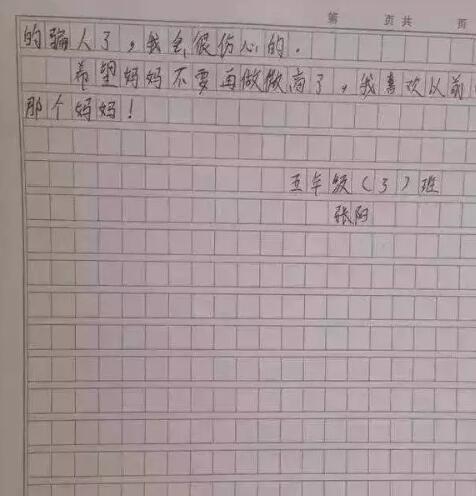 第 页共 页
的骗人了，我会很伤心的.
希望妈妈不要再做微商了，我喜欢以前
那个妈妈！
五年级（3）班
张阿